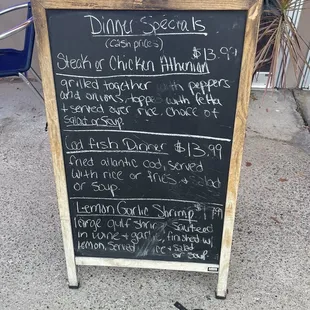 Dinner Specials
(cash prices)
$13.99
Steak or Chicken Athenian
grilled together with peppers
and onions, topped with fetta
+ served over rice. choice of
salad or soup.
Cod fish Dinner $13.99
fried atlantic cod, served
with rice or fries + salad
or soup.
Lemon Garlic Shrimp
large gulf shrimp sauteed
in wine + garlic, finished w/
lemon, served rice + salad
or soup